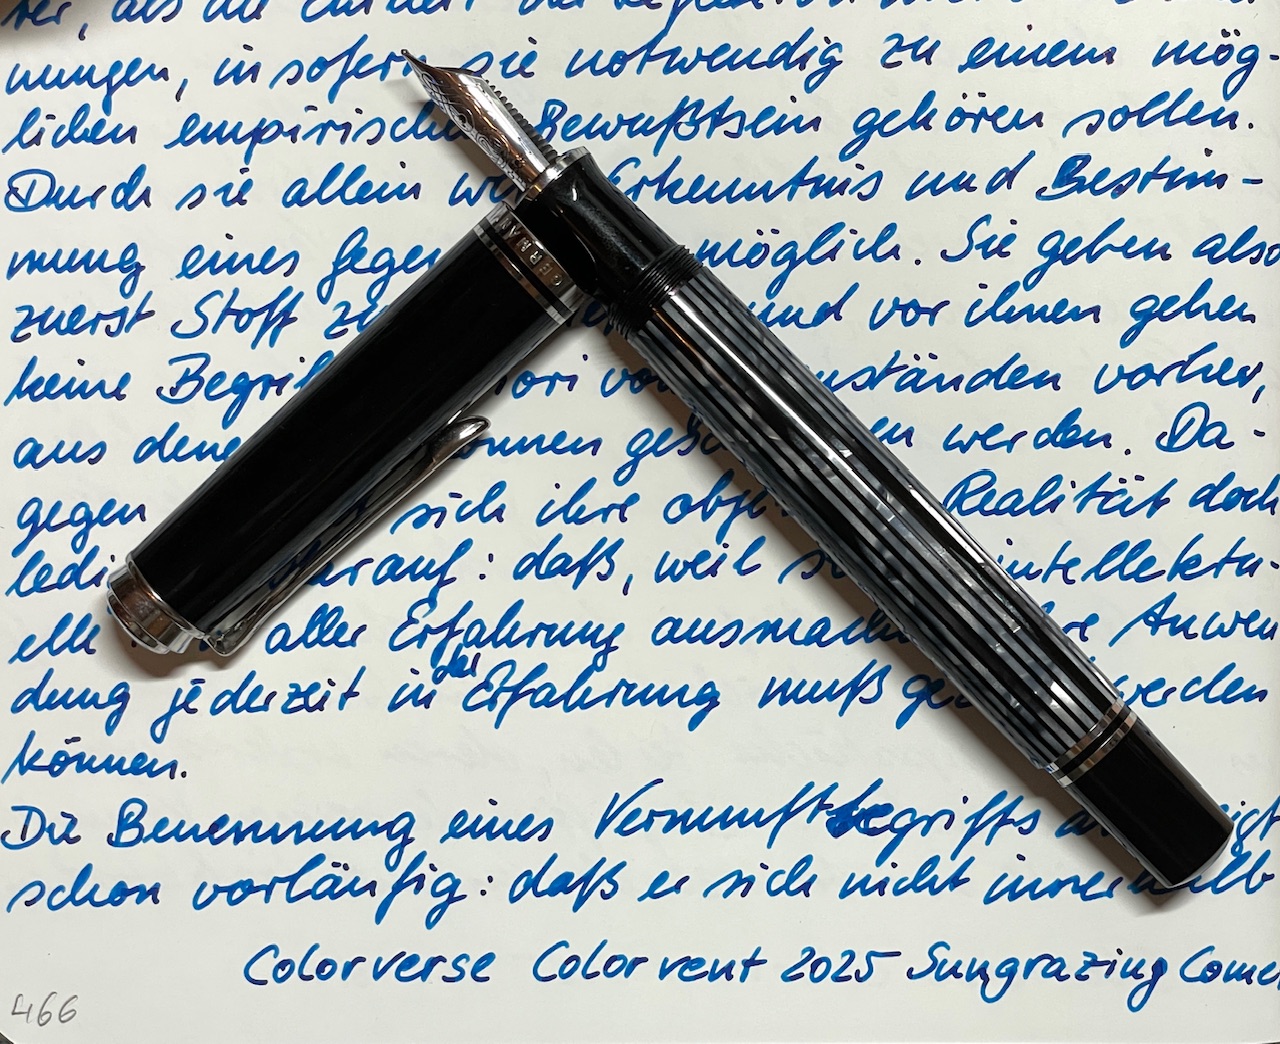 rer, als die Einheit der Reflexion
nungen, insofern sie notwendig zu einem mög-
lichen empirischen Bewußtsein gehören sollen.
Durch sie allein Erkenntnis und Bestim-
mung eines möglich. Sie geben also
zuerst Stoff und vor ihnen gehen
keine vorher,
aus können werden. Da-
gegen sich ihre Realität doch
darauf: daß, weil intellektu-
elle aller Erfahrung Anwen
dung jederzeit in der Erfahrung muß werden
können.
Die Benennung eines Vernunftbegriffs
schon vorläufig: daß er sich nicht innerhalb
Colorverse Colorvent 2025 Sungrazing Comet
466
GERMANY